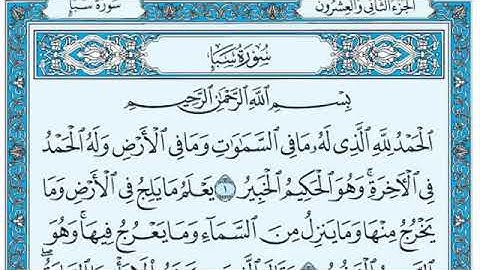 الجزء الثاني والعشرون
سورة سبأ
سُورَةُ سَبَإٍ
بِسْمِ ٱللَّهِ ٱلرَّحْمَٰنِ ٱلرَّحِيمِ
ٱلْحَمْدُ لِلَّهِ ٱلَّذِى لَهُۥ مَا فِى ٱلسَّمَٰوَٰتِ وَمَا فِى ٱلْأَرْضِ وَلَهُ ٱلْحَمْدُ
فِى ٱلْأٓخِرَةِ ۚ وَهُوَ ٱلْحَكِيمُ ٱلْخَبِيرُ ١ يَعْلَمُ مَا يَلِجُ فِى ٱلْأَرْضِ وَمَا
يَخْرُجُ مِنْهَا وَمَا يَنزِلُ مِنَ ٱلسَّمَآءِ وَمَا يَعْرُجُ فِيهَا ۚ وَهُوَ